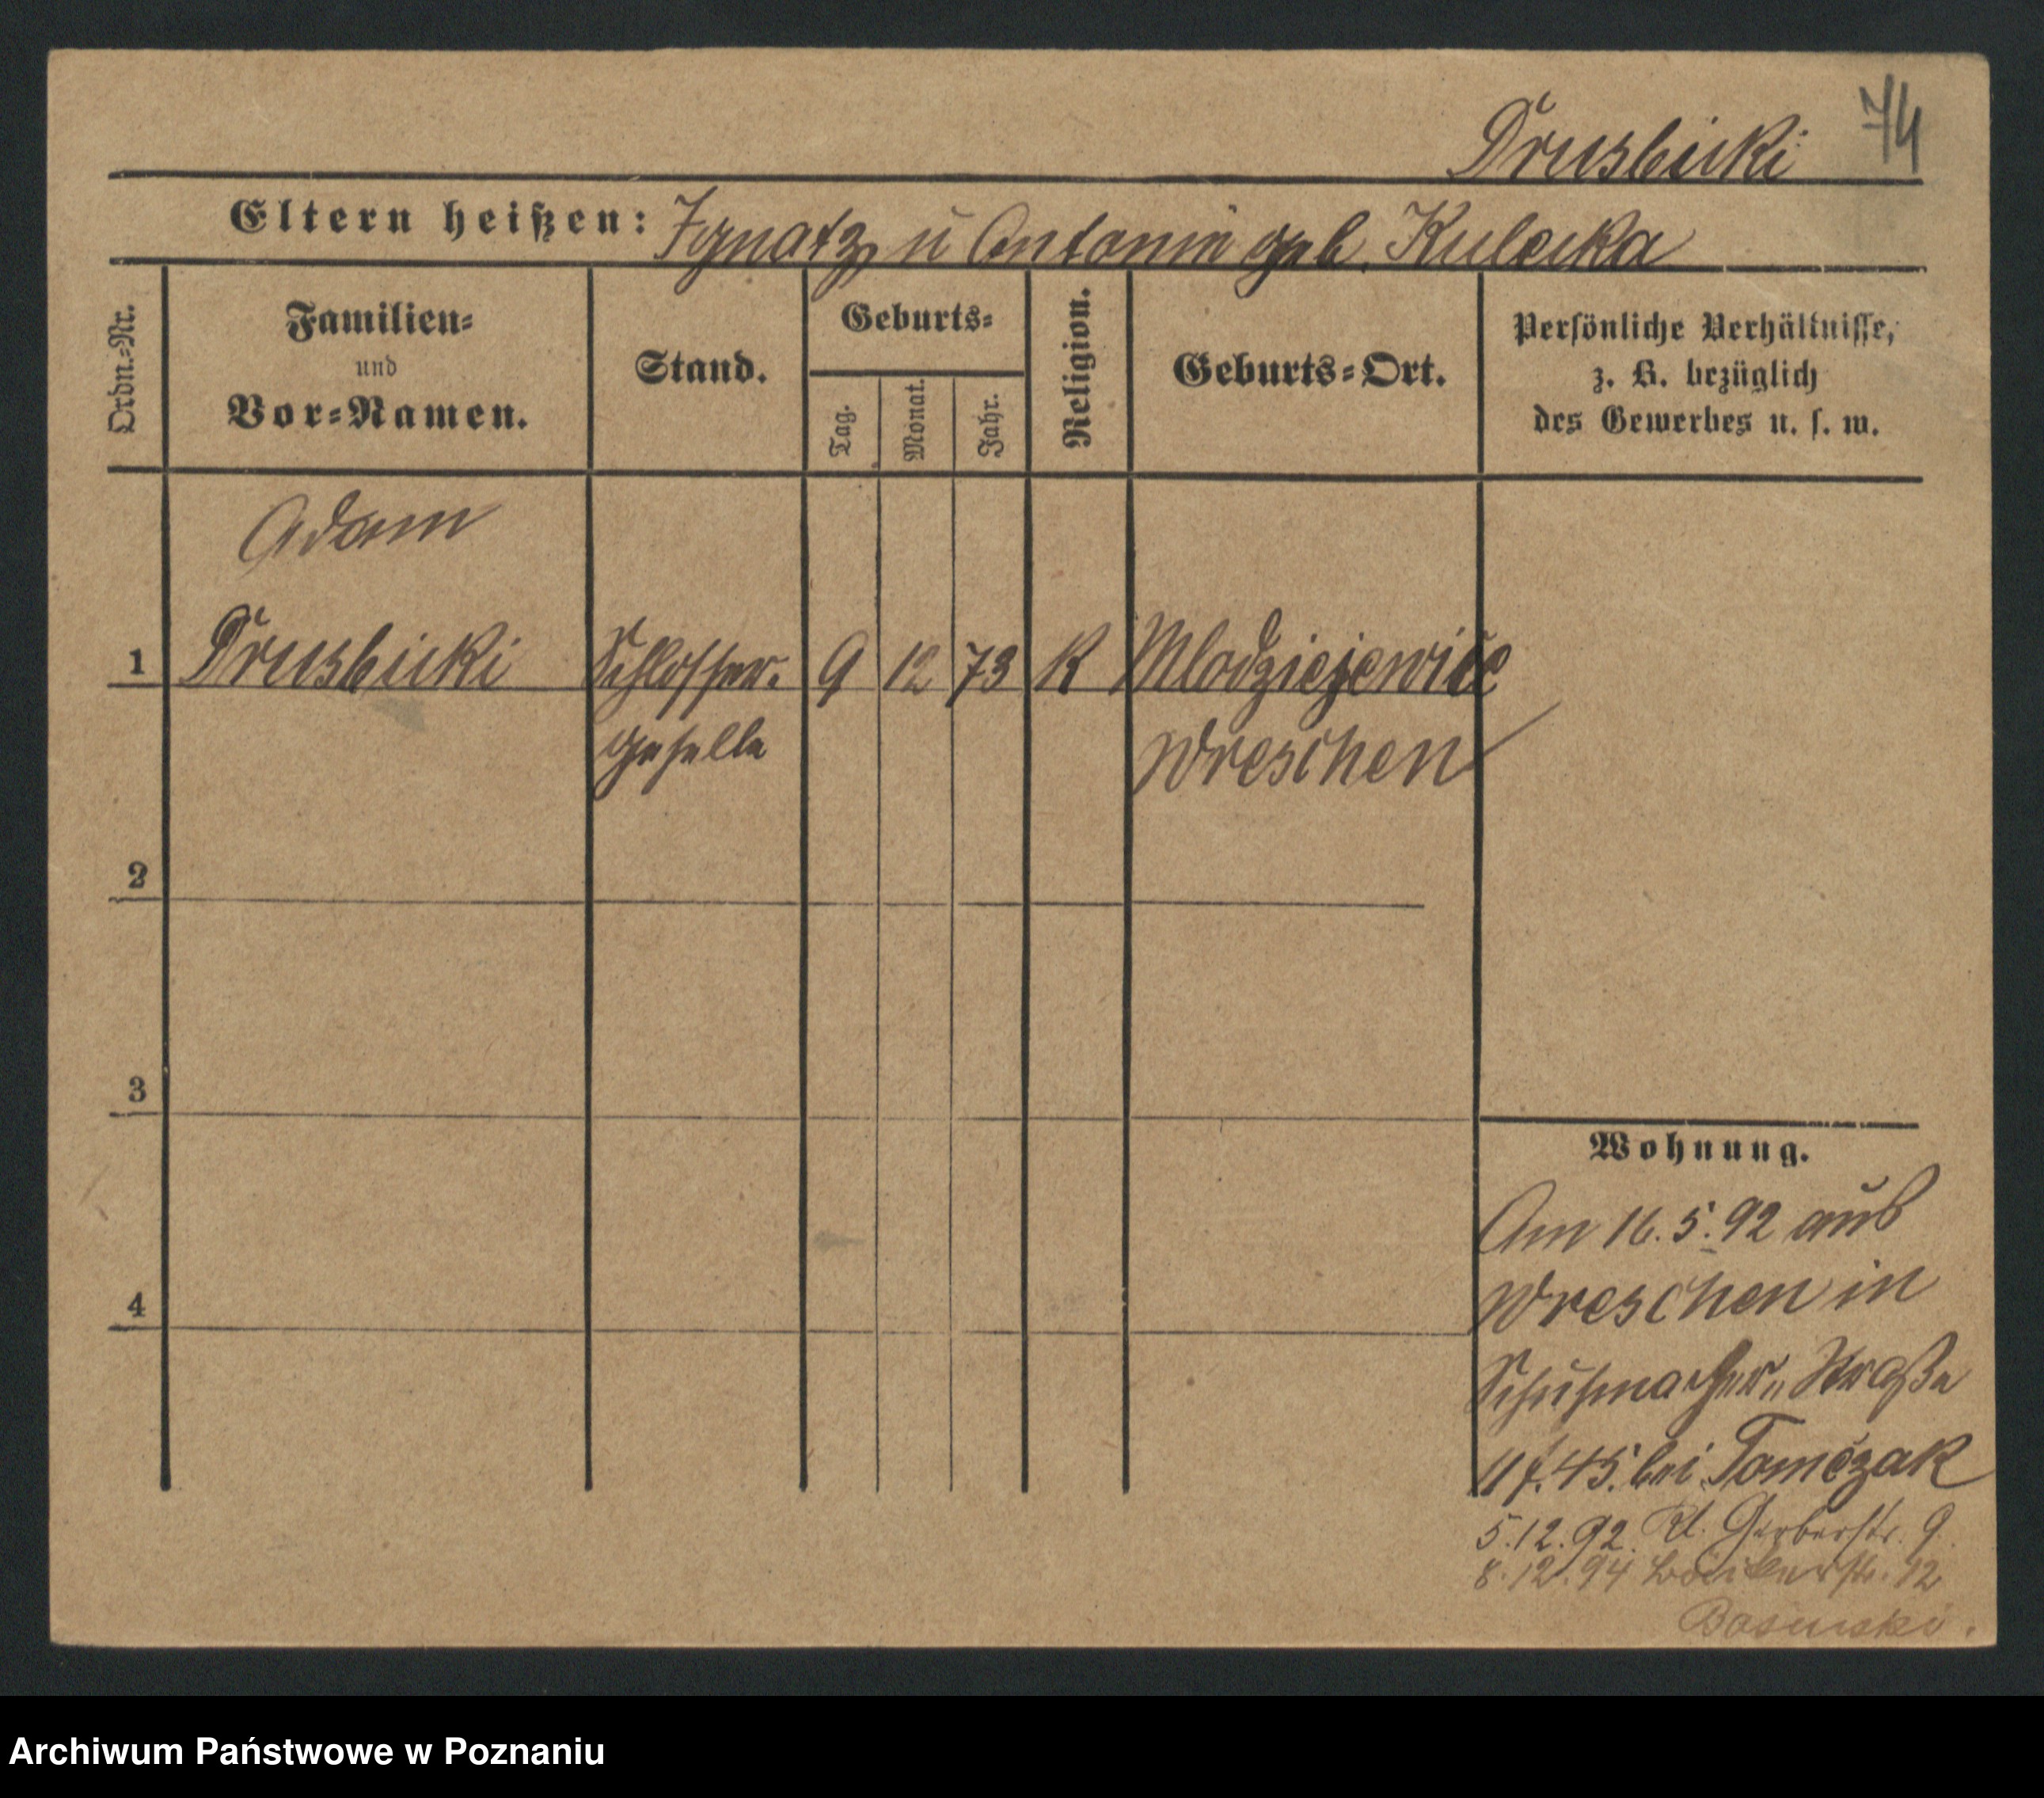 74
Drusbicki
Eltern heißen: Ignatz u Antonie geb. Kulecka
Ordn.-Nr.
Familien-
und
Vor-Namen.
Stand.
Geburts-
Tag.
Monat.
Jahr.
Religion.
Geburts-Ort.
Persönliche Verhältnisse,
z. B. bezüglich
des Gewerbes u. s. w.
Adam
1 Drusbicki Schlosser. 9 12 73 K Mlodziejewice
geselle Wreschen
2
3
4
Wohnung.
Am 16.5.92 aus
Wreschen in
Schuhmacher Straße
45. bei Tomczak
5.12.92. Kl. Gerberstr. 9.
8.12.94 Bäckerstr. 12
Archiwum Państwowe w Poznaniu